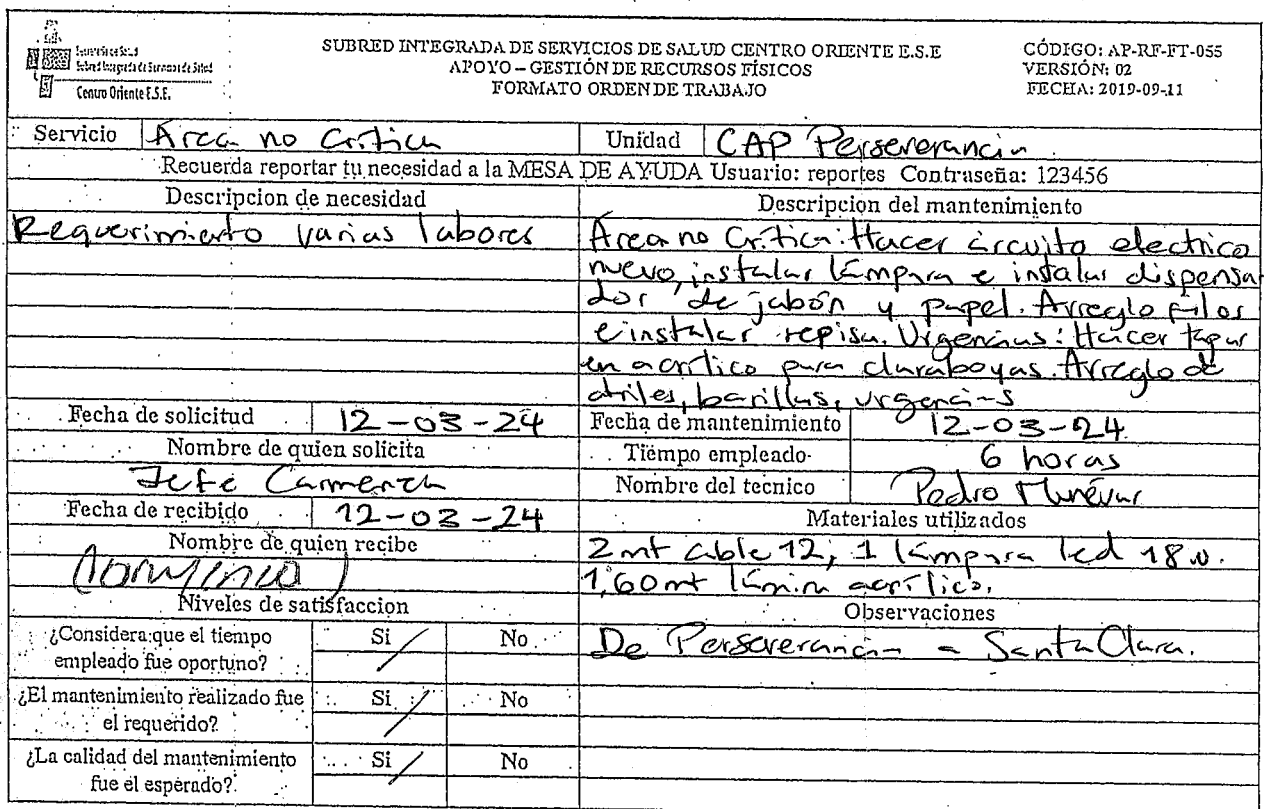 SUBRED INTEGRADA DE SERVICIOS DE SALUD CENTRO ORIENTE E.S.E
APOYO – GESTIÓN DE RECURSOS FÍSICOS
FORMATO ORDEN DE TRABAJO
CÓDIGO: AP-RF-FT-055
VERSIÓN: 02
FECHA: 2019-09-11
Centro Oriente E.S.E.
Servicio Área no Crítica Unidad CAP Perseverancia
Recuerda reportar tu necesidad a la MESA DE AYUDA Usuario: reportes Contraseña: 123456
Descripcion de necesidad
Requerimiento varias labores
Descripcion del mantenimiento
Área no Crítica: Hacer circuito electrico
nuevo, instalar lámpara e instalar dispensa
dor de jabón y papel. Arreglo filos
e instalar repisa. Urgencias: Hacer tapar
en acrílico para claraboyas. Arreglo de
atriles, barillas, urgencias
Fecha de solicitud 12-03-24
Nombre de quien solicita
Jefe Carmenza
Fecha de recibido 12-03-24
Nombre de quien recibe
Fecha de mantenimiento 12-03-24
Tiempo empleado 6 horas
Nombre del tecnico Pedro Munévar
Materiales utilizados
2 mt cable 12, 1 lámpara led 18 w.
1,60 mt lámina acrílico.
Niveles de satisfaccion
¿Considera que el tiempo
empleado fue oportuno? Si No
¿El mantenimiento realizado fue
el requerido? Si No
¿La calidad del mantenimiento
fue el esperado? Si No
Observaciones
De Perseverancia - Santa Clara.